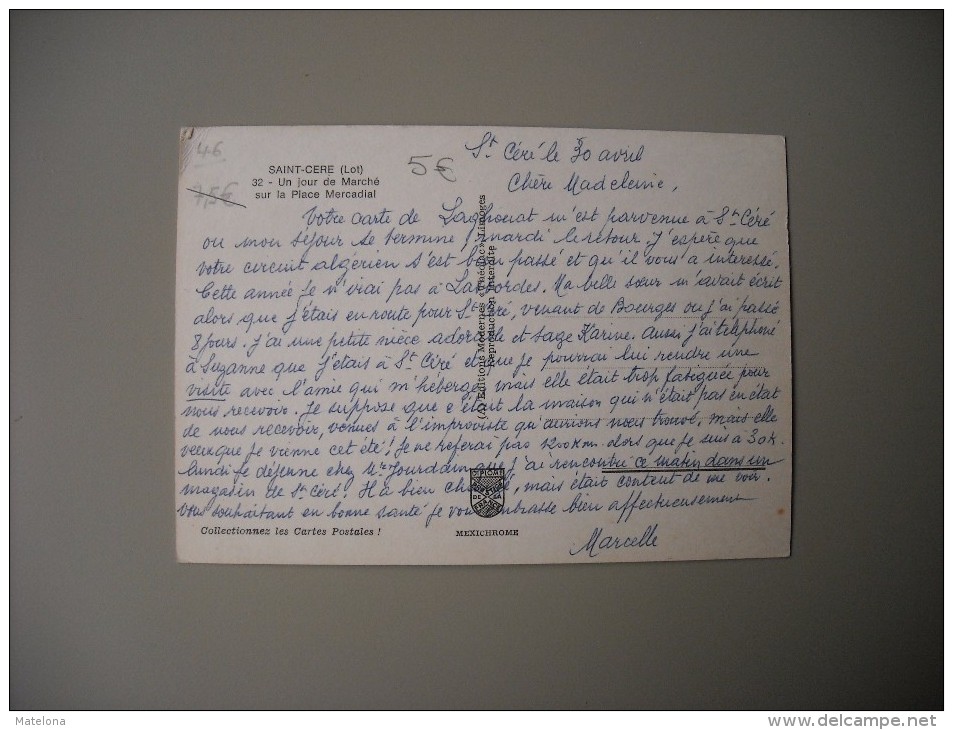 46
SAINT-CERE (Lot)
32 - Un jour de Marché
sur la Place Mercadial
7,5€
5€
St Céré le 30 avril
Chère Madeleine,
Votre carte de Laghouat m'est parvenue à St Céré
ou mon séjour se termine, mardi le retour. J'espère que
votre circuit algérien s'est bien passé et qu'il vous a interessé.
Cette année je n'irai pas à Las Bordes. Ma belle sœur m'avait écrit
alors que j'étais en route pour St Céré, venant de Bourges ou j'ai passé
8 jours. J'ai une petite nièce adorable et sage Karine. Aussi j'ai téléphoné
à Suzanne que j'étais à St Céré et que je pourrai lui rendre une
visite avec l'amie qui m'héberge, mais elle était trop fatiguée pour
nous recevoir. Je suppose que c'était la maison qui n'était pas en état
de nous recevoir, venues à l'improviste qu'aurions nous trouvé, mais elle
veut que je vienne cet été! Je ne referai pas 1200 km. alors que je suis à 30 k.
Lundi je déjeune chez Mr Jourdain que j'ai rencontré ce matin dans un
magasin de St Céré. Il a bien changé, mais était content de me voir.
Vous souhaitant en bonne santé je vous embrasse bien affectueusement
Marcelle
(A) Editions Modernes « Théojac » Limoges
Reproduction Interdite
Collectionnez les Cartes Postales !
MEXICHROME
Matelona
http://www.delcampe.net